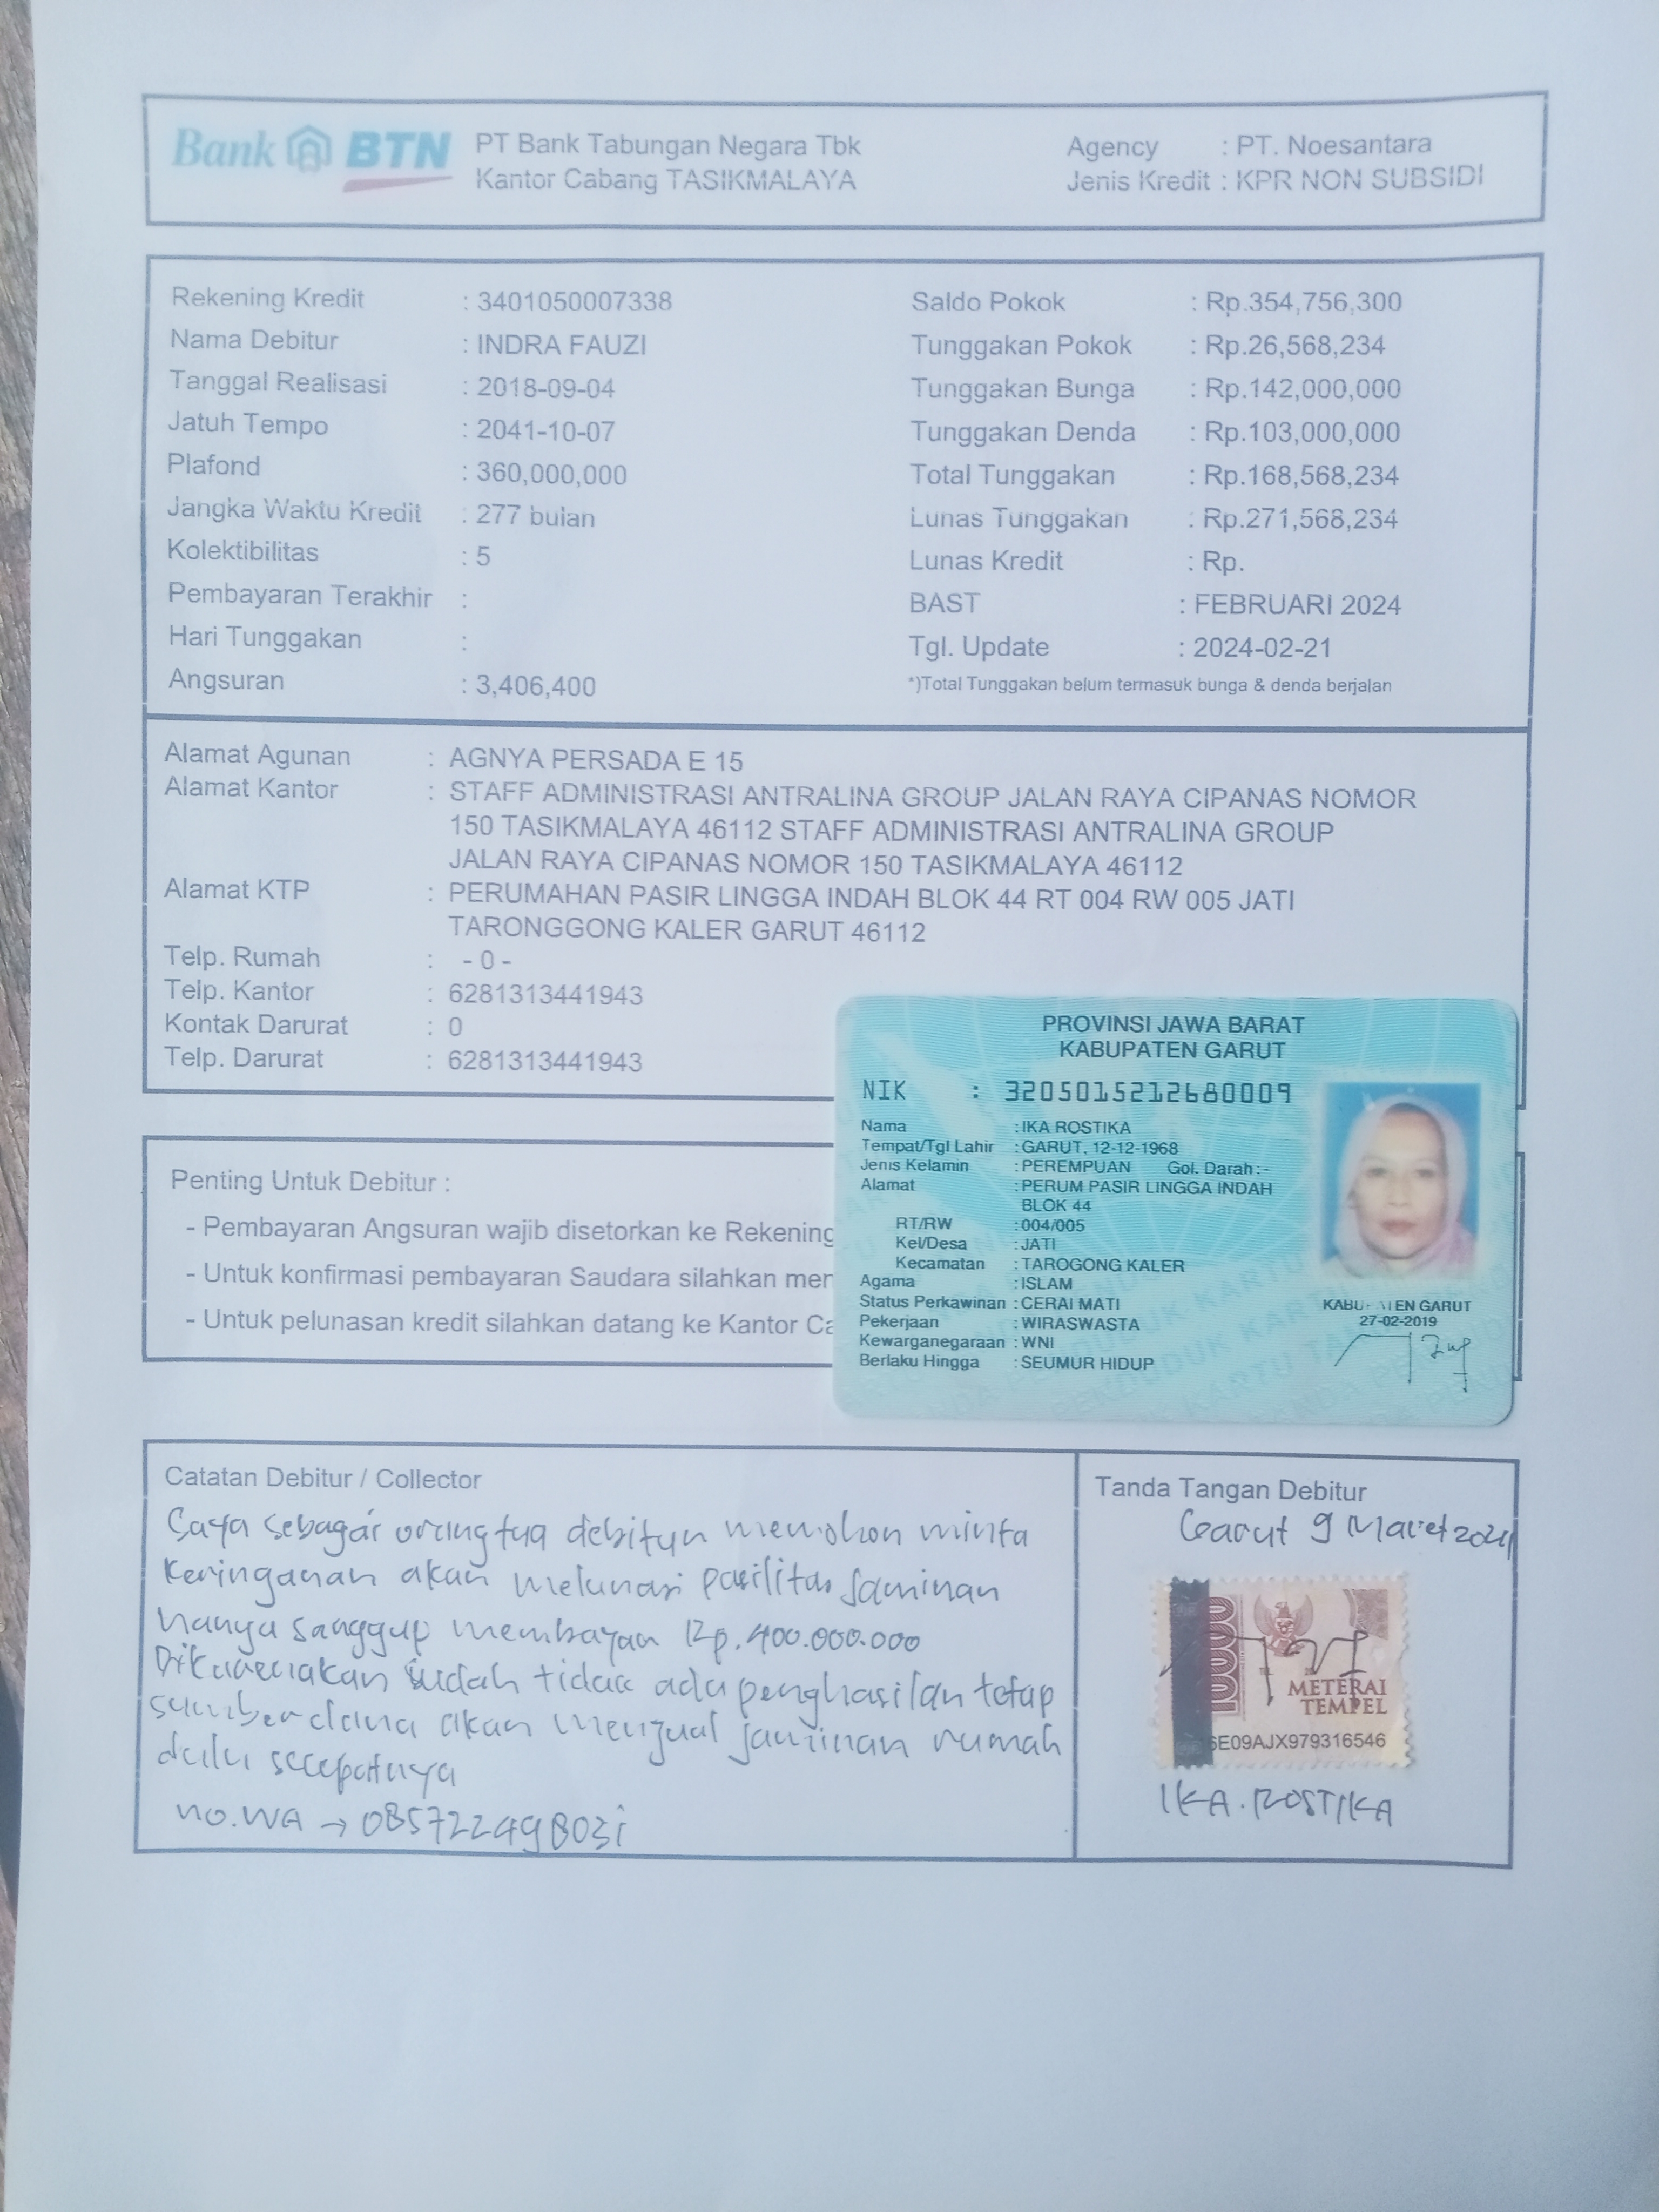 Bank BTN PT Bank Tabungan Negara Tbk
Kantor Cabang TASIKMALAYA
Agency : PT. Noesantara
Jenis Kredit : KPR NON SUBSIDI
Rekening Kredit : 3401050007338
Nama Debitur : INDRA FAUZI
Tanggal Realisasi : 2018-09-04
Jatuh Tempo : 2041-10-07
Plafond : 360,000,000
Jangka Waktu Kredit : 277 bulan
Kolektibilitas : 5
Pembayaran Terakhir :
Hari Tunggakan :
Angsuran : 3,406,400
Saldo Pokok : Rp.354,756,300
Tunggakan Pokok : Rp.26,568,234
Tunggakan Bunga : Rp.142,000,000
Tunggakan Denda : Rp.103,000,000
Total Tunggakan : Rp.168,568,234
Lunas Tunggakan : Rp.271,568,234
Lunas Kredit : Rp.
BAST : FEBRUARI 2024
Tgl. Update : 2024-02-21
*)Total Tunggakan belum termasuk bunga & denda berjalan
Alamat Agunan : AGNYA PERSADA E 15
Alamat Kantor : STAFF ADMINISTRASI ANTRALINA GROUP JALAN RAYA CIPANAS NOMOR
150 TASIKMALAYA 46112 STAFF ADMINISTRASI ANTRALINA GROUP
JALAN RAYA CIPANAS NOMOR 150 TASIKMALAYA 46112
Alamat KTP : PERUMAHAN PASIR LINGGA INDAH BLOK 44 RT 004 RW 005 JATI
TARONGGONG KALER GARUT 46112
Telp. Rumah : - 0 -
Telp. Kantor : 6281313441943
Kontak Darurat : 0
Telp. Darurat : 6281313441943
PROVINSI JAWA BARAT
KABUPATEN GARUT
NIK : 3205015212680009
Nama : IKA ROSTIKA
Tempat/Tgl Lahir : GARUT, 12-12-1968
Jenis Kelamin : PEREMPUAN Gol. Darah :-
Alamat : PERUM PASIR LINGGA INDAH
BLOK 44
RT/RW : 004/005
Kel/Desa : JATI
Kecamatan : TAROGONG KALER
Agama : ISLAM
Status Perkawinan : CERAI MATI
Pekerjaan : WIRASWASTA
Kewarganegaraan : WNI
Berlaku Hingga : SEUMUR HIDUP
GARUT
27-02-2019
Penting Untuk Debitur :
- Pembayaran Angsuran wajib disetorkan ke Rekening
- Untuk konfirmasi pembayaran Saudara silahkan
- Untuk pelunasan kredit silahkan datang ke Kantor
Catatan Debitur / Collector
Saya sebagai orang tua debitur memohon minta
keringanan akan melunasi pasilitas Jaminan
hanya sanggup membayar Rp.400.000.000
Dikarenakan sudah tidak ada penghasilan tetap
sumber dana akan menjual jaminan rumah
dulu secepatnya
no.WA → 085722498031
Tanda Tangan Debitur
Garut 9 Maret 2024
METERAI
TEMPEL
6E09AJX979316546
IKA.ROSTIKA